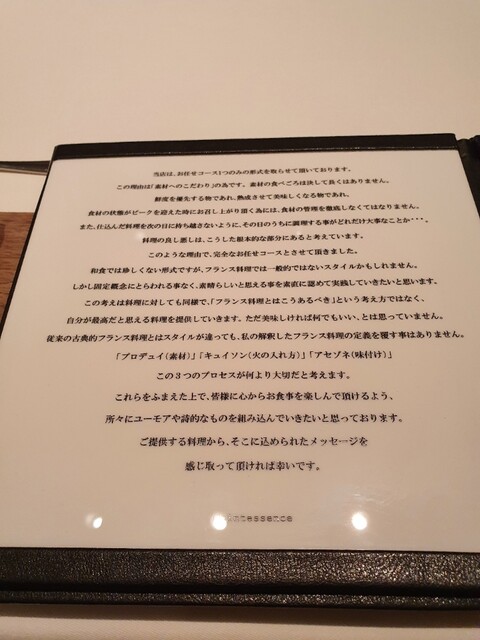 当店は、お任せコース1つのみの形式を取らせて頂いております。
この理由は「素材へのこだわり」の為です。 素材の食べごろは決して長くはありません。
鮮度を優先する物であれ、熟成させて美味しくなる物であれ、
食材の状態がピークを迎えた時にお召し上がり頂く為には、食材の管理を徹底しなくてはなりません。
また、仕込んだ料理を次の日に持ち越さないように、その日のうちに調理する事がどれだけ大事なことか・・・
料理の良し悪しは、こうした根本的な部分にあると考えています。
このような理由で、完全なお任せコースとさせて頂きました。
和食では珍しくない形式ですが、フランス料理では一般的ではないスタイルかもしれません。
しかし固定概念にとらわれる事なく、素晴らしいと思える事を素直に認めて実践していきたいと思います。
この考えは料理に対しても同様で、「フランス料理とはこうあるべき」という考え方ではなく、
自分が最高だと思える料理を提供していきます。ただ美味しければ何でもいい、とは思っていません。
従来の古典的フランス料理とはスタイルが違っても、私の解釈したフランス料理の定義を覆す事はありません。
「プロデュイ(素材)」「キュイソン(火の入れ方)」「アセゾネ(味付け)」
この3つのプロセスが何より大切だと考えます。
これらをふまえた上で、皆様に心からお食事を楽しんで頂けるよう、
所々にユーモアや詩的なものを組み込んでいきたいと思っております。
ご提供する料理から、そこに込められたメッセージを
感じ取って頂ければ幸いです。